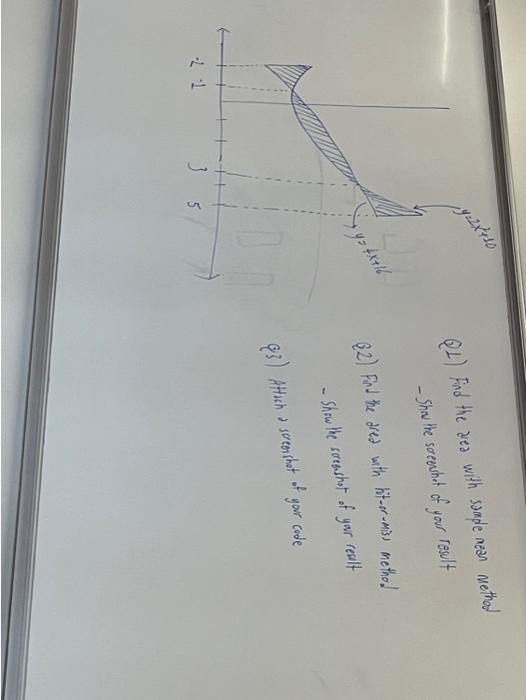 y=2x²+10
y=4x+16
-2 -1 3 5
Q1) Find the area with sample mean method
- Show the screenshot of your result
Q2) Find the area with hit-or-miss method
- Show the screenshot of your result
Q3) Attach a screenshot of your code